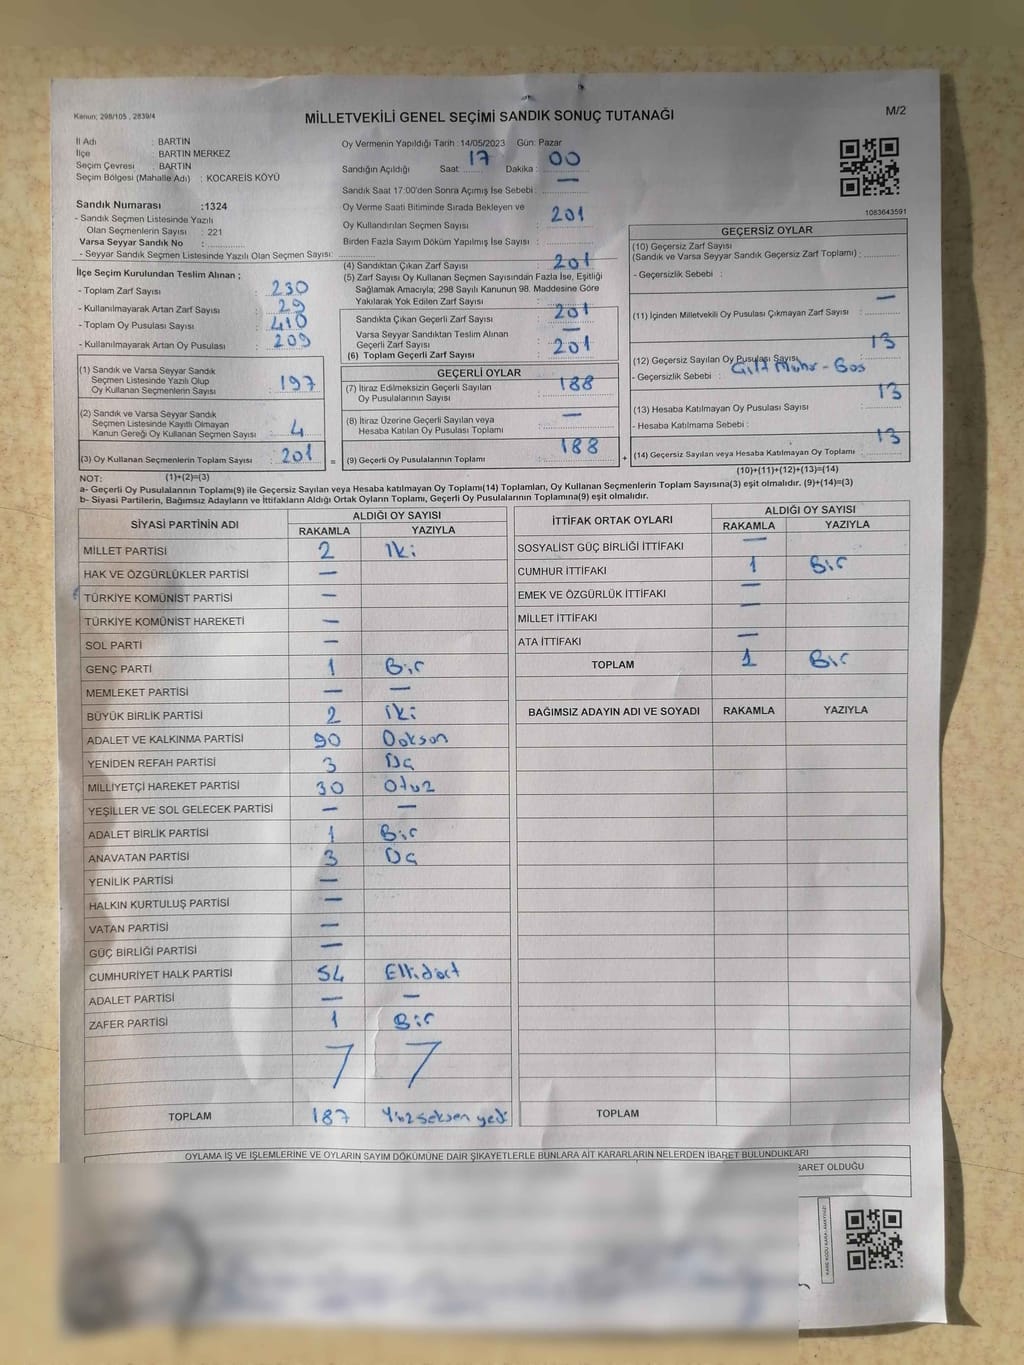 Kanun; 298/105 , 2839/4
MİLLETVEKİLİ GENEL SEÇİMİ SANDIK SONUÇ TUTANAĞI
M/2
İl Adı : BARTIN
İlçe : BARTIN MERKEZ
Seçim Çevresi : BARTIN
Seçim Bölgesi (Mahalle Adı) : KOCAREİS KÖYÜ
Sandık Numarası :1324
- Sandık Seçmen Listesinde Yazılı
Olan Seçmenlerin Sayısı : 221
Varsa Seyyar Sandık No :
- Seyyar Sandık Seçmen Listesinde Yazılı Olan Seçmen Sayısı:
İlçe Seçim Kurulundan Teslim Alınan ;
- Toplam Zarf Sayısı : 230
- Kullanılmayarak Artan Zarf Sayısı : 29
- Toplam Oy Pusulası Sayısı : 410
- Kullanılmayarak Artan Oy Pusulası : 209
(1) Sandık ve Varsa Seyyar Sandık
Seçmen Listesinde Yazılı Olup
Oy Kullanan Seçmenlerin Sayısı : 197
(2) Sandık ve Varsa Seyyar Sandık
Seçmen Listesinde Kayıtlı Olmayan
Kanun Gereği Oy Kullanan Seçmen Sayısı : 4
(3) Oy Kullanan Seçmenlerin Toplam Sayısı : 201
Oy Vermenin Yapıldığı Tarih : 14/05/2023 Gün: Pazar
Sandığın Açıldığı Saat: 17 Dakika : 00
Sandık Saat 17:00'den Sonra Açımış İse Sebebi : —
Oy Verme Saati Bitiminde Sırada Bekleyen ve
Oy Kullandırılan Seçmen Sayısı : 201
Birden Fazla Sayım Döküm Yapılmış İse Sayısı :
(4) Sandıktan Çıkan Zarf Sayısı : 201
(5) Zarf Sayısı Oy Kullanan Seçmen Sayısından Fazla İse, Eşitliği
Sağlamak Amacıyla, 298 Sayılı Kanunun 98. Maddesine Göre
Yakılarak Yok Edilen Zarf Sayısı :
Sandıkta Çıkan Geçerli Zarf Sayısı : 201
Varsa Seyyar Sandıktan Teslim Alınan
Geçerli Zarf Sayısı : —
(6) Toplam Geçerli Zarf Sayısı : 201
GEÇERLİ OYLAR
(7) İtiraz Edilmeksizin Geçerli Sayılan
Oy Pusulalarının Sayısı : 188
(8) İtiraz Üzerine Geçerli Sayılan veya
Hesaba Katılan Oy Pusulası Toplamı : —
= (9) Geçerli Oy Pusulalarının Toplamı : 188 +
1083643591
GEÇERSİZ OYLAR
(10) Geçersiz Zarf Sayısı
(Sandık ve Varsa Seyyar Sandık Geçersiz Zarf Toplamı) :
- Geçersizlik Sebebi :
(11) İçinden Milletvekili Oy Pusulası Çıkmayan Zarf Sayısı : —
(12) Geçersiz Sayılan Oy Pusulası Sayısı : 13
- Geçersizlik Sebebi : Çift Mühür - Boş
(13) Hesaba Katılmayan Oy Pusulası Sayısı : 13
- Hesaba Katılmama Sebebi :
(14) Geçersiz Sayılan veya Hesaba Katılmayan Oy Toplamı : 13
NOT: (1)+(2)=(3)
(10)+(11)+(12)+(13)=(14)
a- Geçerli Oy Pusulalarının Toplamı(9) ile Geçersiz Sayılan veya Hesaba katılmayan Oy Toplamı(14) Toplamları, Oy Kullanan Seçmenlerin Toplam Sayısına(3) eşit olmalıdır. (9)+(14)=(3)
b- Siyasi Partilerin, Bağımsız Adayların ve İttifakların Aldığı Ortak Oyların Toplamı, Geçerli Oy Pusulalarının Toplamına(9) eşit olmalıdır.
SİYASİ PARTİNİN ADI ALDIĞI OY SAYISI
RAKAMLA YAZIYLA
MİLLET PARTİSİ 2 iki
HAK VE ÖZGÜRLÜKLER PARTİSİ —
TÜRKİYE KOMÜNİST PARTİSİ —
TÜRKİYE KOMÜNİST HAREKETİ —
SOL PARTİ —
GENÇ PARTİ 1 Bir
MEMLEKET PARTİSİ — —
BÜYÜK BİRLİK PARTİSİ 2 iki
ADALET VE KALKINMA PARTİSİ 90 Doksan
YENİDEN REFAH PARTİSİ 3 Üç
MİLLİYETÇİ HAREKET PARTİSİ 30 Otuz
YEŞİLLER VE SOL GELECEK PARTİSİ — —
ADALET BİRLİK PARTİSİ 1 Bir
ANAVATAN PARTİSİ 3 Üç
YENİLİK PARTİSİ —
HALKIN KURTULUŞ PARTİSİ —
VATAN PARTİSİ —
GÜÇ BİRLİĞİ PARTİSİ —
CUMHURİYET HALK PARTİSİ 54 Ellidört
ADALET PARTİSİ — —
ZAFER PARTİSİ 1 Bir
TOPLAM 187 Yüzseksen yedi
İTTİFAK ORTAK OYLARI ALDIĞI OY SAYISI
RAKAMLA YAZIYLA
SOSYALİST GÜÇ BİRLİĞİ İTTİFAKI —
CUMHUR İTTİFAKI 1 Bir
EMEK VE ÖZGÜRLÜK İTTİFAKI —
MİLLET İTTİFAKI —
ATA İTTİFAKI —
TOPLAM 1 Bir
BAĞIMSIZ ADAYIN ADI VE SOYADI RAKAMLA YAZIYLA
TOPLAM
OYLAMA İŞ VE İŞLEMLERİNE VE OYLARIN SAYIM DÖKÜMÜNE DAİR ŞİKAYETLERLE BUNLARA AİT KARARLARIN NELERDEN İBARET BULUNDUKLARI
BARET OLDUĞU